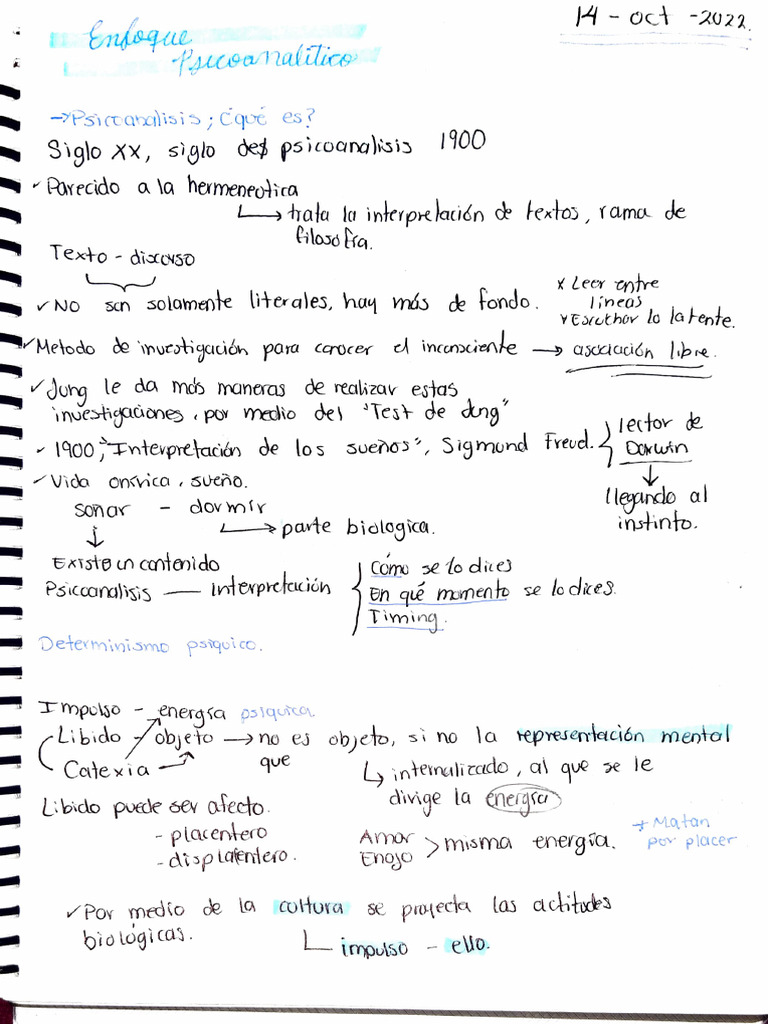 14 - oct - 2022.
Enfoque
Psicoanalítico
→Psicoanalisis; ¿qué es?
Siglo XX, siglo del psicoanalisis 1900
✓Parecido a la hermeneutica
↳ trata la interpretación de textos, rama de
filosofía.
Texto - discurso
✓ No son solamente literales, hay más de fondo.
x Leer entre
líneas
x Escuchar lo latente.
✓Metodo de investigación para conocer el inconsciente → asociación libre.
✓Jung le da más maneras de realizar estas
investigaciones, por medio del "Test de Jung"
- 1900; "Interpretación de los sueños", Sigmund Freud. { lector de
Darwin
↓
llegando al
instinto.
✓Vida onírica, sueño.
soñar - dormir
↳ parte biologica.
↓
Existe un contenido
Psicoanalisis — Interpretación { Cómo se lo dices
En qué momento se lo dices.
Timing.
Determinismo psiquico.
Impulso - energía psiquica
Libido - objeto → no es objeto, si no la representación mental
Catexia → que
↳ internalizado, al que se le
divige la energía
Libido puede ser afecto.
- placentero
- displacentero.
Amor
Enojo > misma energía.
→ Matan
por placer
✓Por medio de la cultura se proyecta las actitudes
biológicas.
∟ impulso - ello.